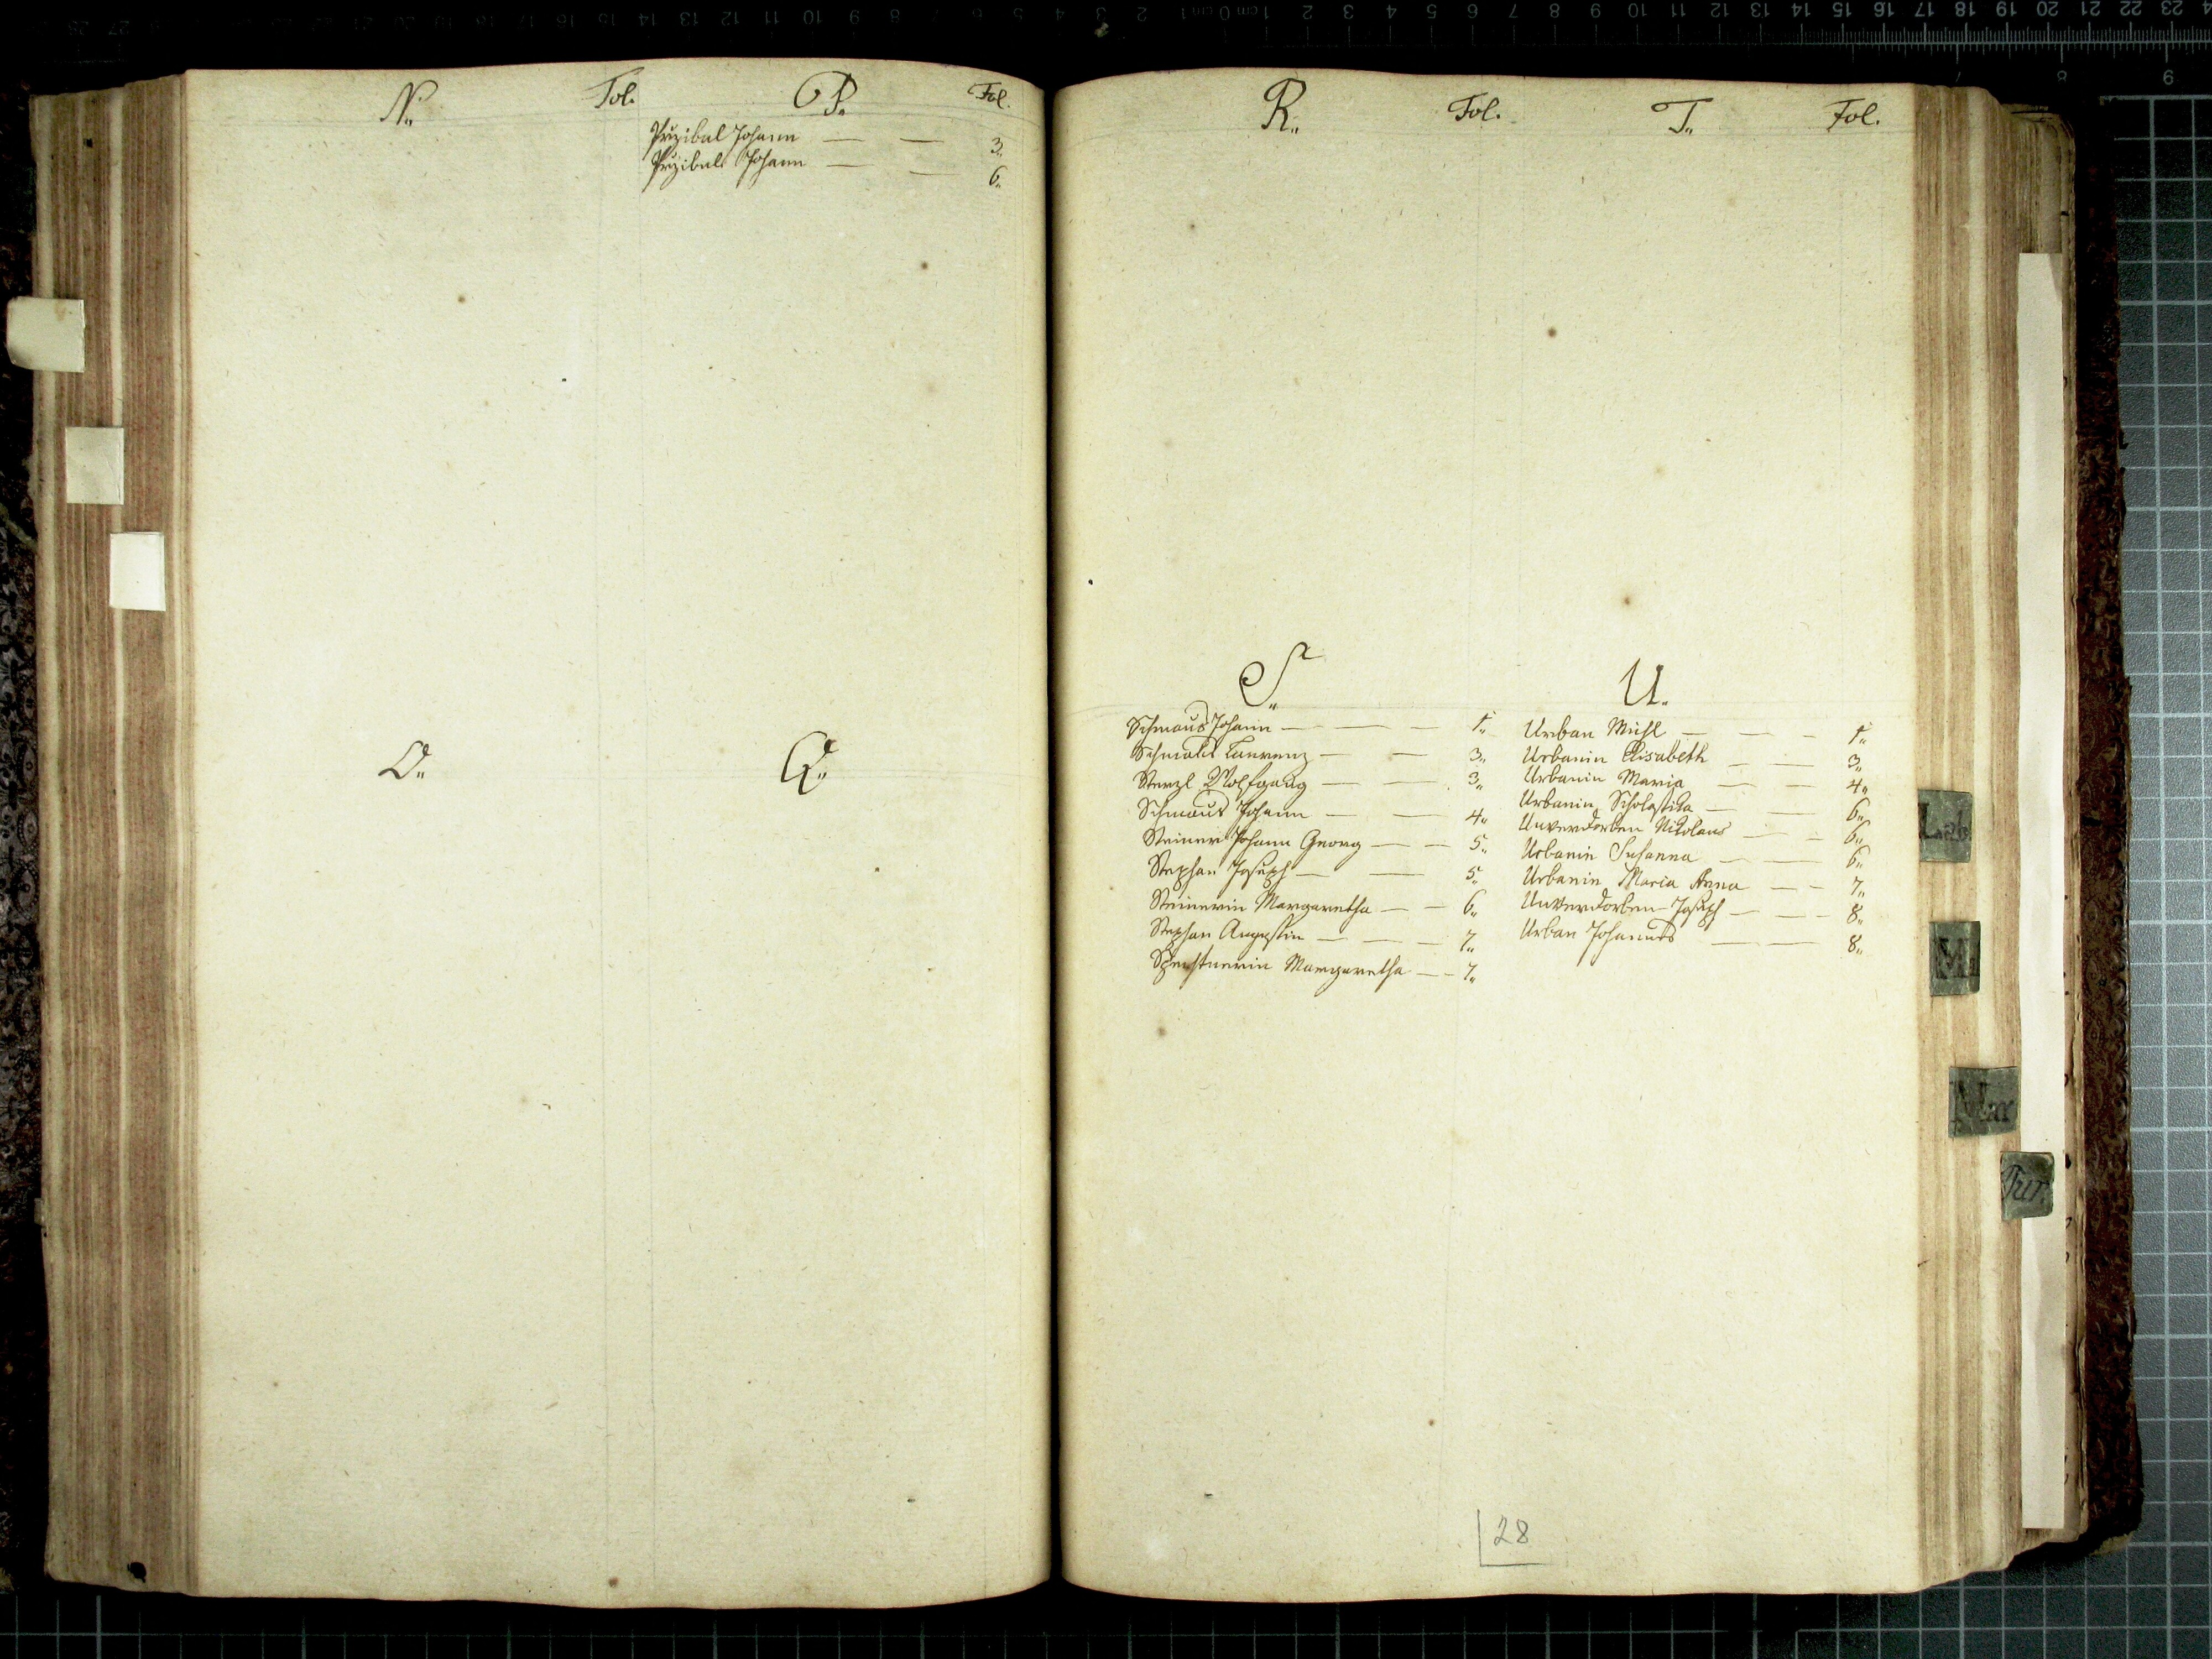 N. Fol. P. Fol.
Przibal Johann — — 3.
Przibal Johann — — 6.
O. Q.
R. Fol. T. Fol.
S.
Schmaus Johann — — — — 1.
Schmaus Laurenz — — 3.
Sterzl Wolfgang — — 3.
Schmaus Johann — — 4.
Steiner Johann Georg — — 5.
Stephan Joseph — — 5.
Steinerin Margaretha — — 6.
Stephan Augustin — — — 7.
Margaretha — — 7.
U.
Urban Michl — — — 1.
Urbanin Elisabeth — — 3.
Urbanin Maria — — 4.
Urbanin Scholastika — — 6.
Unverdorben Nikolaus — — 6.
Urbanin Susanna — — 6.
Urbanin Maria Anna — — 7.
Unverdorben Joseph — — — 8.
Urban Johannes — — 8.
28
M
Mar